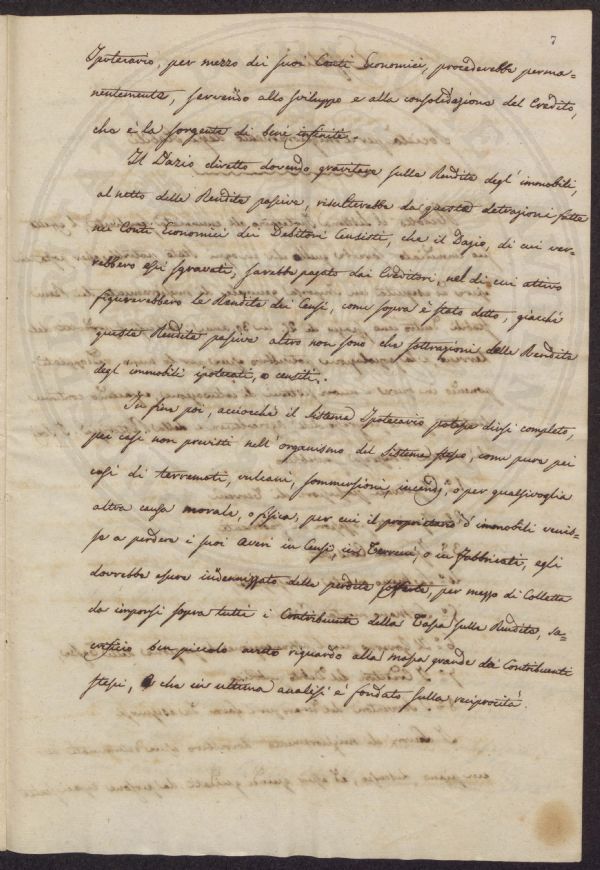 7
Ipotecario, per mezzo dei suoi Conti Economici, procederebbe perma-
nentemente, servendo allo sviluppo e alla consolidazione del Credito,
che è la sorgente di beni infiniti.
Il Dazio diretto dovendo gravitare sulla Rendita degl'immobili,
al netto delle Rendite passive, risulterebbe da queste detrazioni fatte
nei Conti Economici dei Debitori Censisti, che il Dazio, di cui ver-
rebbero essi sgravati, sarebbe pagato dai Creditori, nel di cui attivo
figurerebbero le Rendite dei Censi, come sopra è stato detto, giacché
queste Rendite passive altro non sono che sottrazioni delle Rendite
degl'immobili ipotecati, o censiti.
In fine poi, acciocché il Sistema Ipotecario potesse dirsi completo,
pei casi non previsti nell'organismo del Sistema stesso, come pure pei
casi di terremoti, vulcani, sommersioni, incendj, o per qualsivoglia
altra causa morale, o fisica, per cui il proprietario d'immobili venis-
se a perdere i suoi averi in Censi, in Terreni, o in Fabbricati, egli
dovrebbe essere indennizzato delle perdite sofferte, per mezzo di Collette
da imporsi sopra tutti i Contribuenti della Tassa sulla Rendita, sa-
crificio ben piccolo avuto riguardo alla massa grande dei Contribuenti
stessi, e che in ultima analisi è fondato sulla reciprocità.